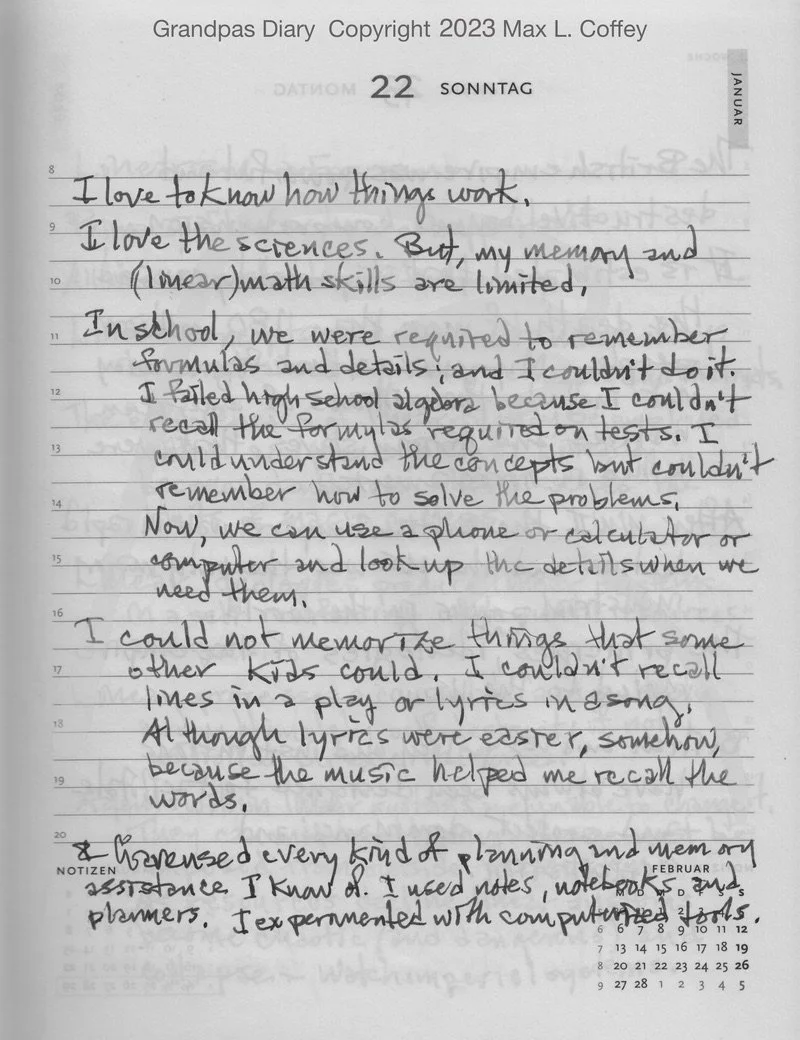 Grandpas Diary Copyright 2023 Max L. Coffey
22 SONNTAG
JANUAR
8
I love to know how things work.
9
I love the sciences. But, my memory and
10
(linear) math skills are limited.
11
In school, we were required to remember
formulas and details; and I couldn't do it.
12
I failed high school algebra because I couldn't
recall the formulas required on tests. I
13
could understand the concepts but couldn't
remember how to solve the problems.
14
Now, we can use a phone or calculator or
15
computer and look up the details when we
need them.
16
I could not memorize things that some
17
other kids could. I couldn't recall
lines in a play or lyrics in a song.
18
Although lyrics were easier, somehow,
because the music helped me recall the
19
words.
20
I have used every kind of planning and memory
NOTIZEN
FEBRUAR
assistance I know of. I used notes, notebooks and
planners. I experimented with computerized tools.
6 6 7 8 9 10 11 12
7 13 14 15 16 17 18 19
8 20 21 22 23 24 25 26
9 27 28 1 2 3 4 5